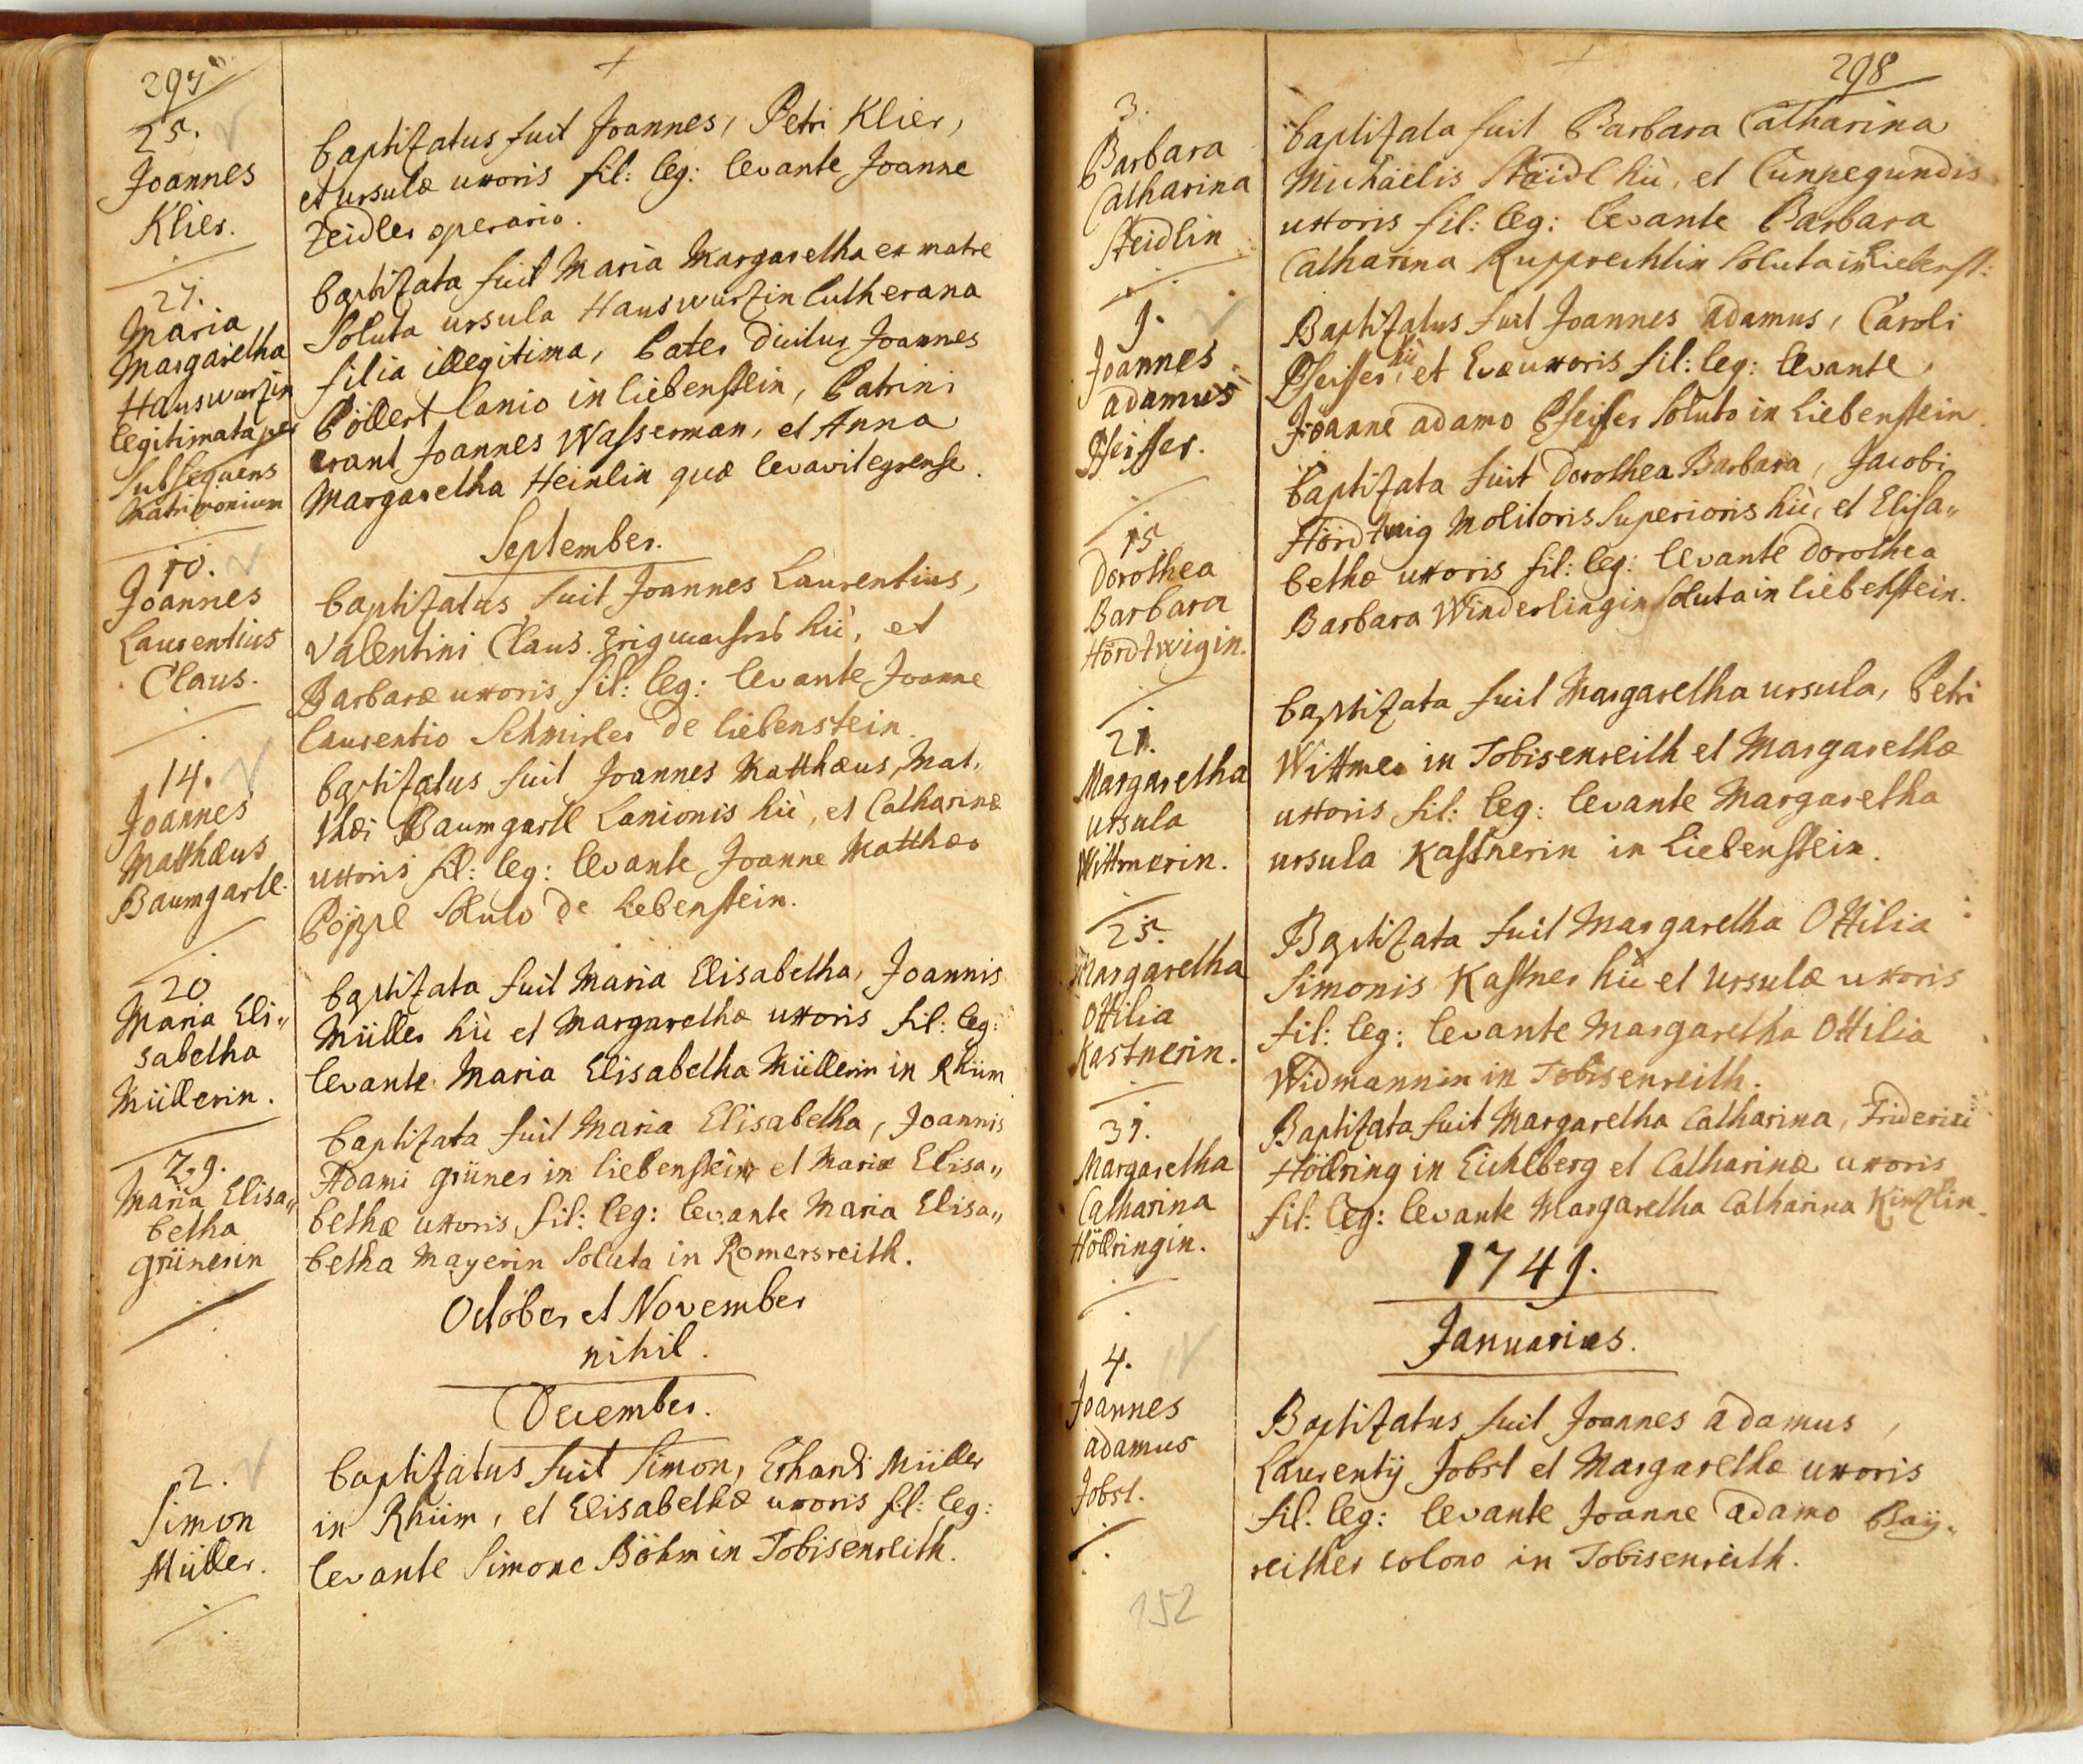 297
25.
Joannes
Klier.
Baptizatus fuit Joannes, Petri Klier,
et ursulæ uxoris fil: leg: levante Joanne
Zeidler operario.
27.
Maria
Margaretha
Hauswurzin
legitimata per
subsequens
Matrimonium
Baptizata fuit Maria Margaretha ex matre
Soluta ursula Hauswurzin lutherana
filia illegitima, Pater dicitur Joannes
Pöllert lanio in liebenstein, Patrini
erant Joannes Wasserman, et Anna
Margaretha Heinlin quæ levavit
September.
10.
Joannes
Laurentius
Claus.
Baptizatus fuit Joannes Laurentius,
Valentini Claus hiì, et
Barbaræ uxoris fil: leg: levante Joanne
laurentio Schmirler de liebenstein.
14.
Joannes
Matthæus
Baumgartl.
Baptizatus fuit Joannes Matthæus, Mat„
thæi Baumgartl Lanionis hiì, et Catharinæ
uxoris fil: leg: levante Joanne Matthæo
Pöppl Soluto de Liebenstein.
20
Maria Eli„
sabetha
Müllerin.
Baptizata fuit Maria Elisabetha, Joannis
Müller hiì et Margarethæ uxoris fil: leg:
levante Maria Elisabetha Müllerin in Rhüm
29.
Maria Elisa„
betha
Grünerin
Baptizata fuit Maria Elisabetha, Joannis
Adami Grüner in liebenstein et Mariæ Elisa„
bethæ uxoris fil: leg: levante Maria Elisa„
betha Mayerin Soluta in Romersreith.
October et November
nihil.
December.
2.
Simon
Müller.
Baptizatus fuit Simon, Erhardi Müller
in Rhüm, et Elisabethæ uxoris fil: leg:
levante Simone Böhm in Tobisenreith.
298
3.
Barbara
Catharina
Steidlin
Baptizata fuit Barbara Catharina
Michaelis Steidl hiì, et Cunnegundis
uxoris fil: leg: levante Barbara
Catharina Rupprechtin Soluta in Liebenst:
9.
Joannes
Adamus
Pfeiffer.
Baptizatus fuit Joannes Adamus, Caroli
Pfeiffer hiì, et Evæ uxoris fil: leg: levante
Joanne Adamo Pfeiffer Soluto in Liebenstein.
15
Dorothea
Barbara
Hördtwigin.
Baptizata fuit Dorothea Barbara, Jacobi
Hördtwig Molitoris Superioris hiì, et Elisa„
bethæ uxoris fil: leg: levante Dorothea
Barbara Winderlingin Soluta in liebenstein.
21.
Margaretha
ursula
Wittmerin.
Baptizata fuit Margaretha ursula, Petri
Wittmer in Tobisenreith et Margarethæ
uxoris fil: leg: levante Margaretha
ursula Kastnerin in Liebenstein.
25.
Margaretha
Ottilia
Kastnerin.
Baptizata fuit Margaretha Ottilia
Simonis Kastner hiì et Ursulæ uxoris
fil: leg: levante Margaretha Ottilia
Widmannin in Tobisenreith.
31.
Margaretha
Catharina
Höllringin.
Baptizata fuit Margaretha Catharina, Friderici
Höllring in Eichlberg et Catharinæ uxoris
fil: leg: levante Margaretha Catharina Kinzlin.
1749.
Januarius.
4.
Joannes
Adamus
Jobst.
Baptizatus fuit Joannes Adamus,
Laurentij Jobst et Margarethæ uxoris
fil. leg: levante Joanne Adamo Baÿ„
reither colono in Tobisenreith.
152